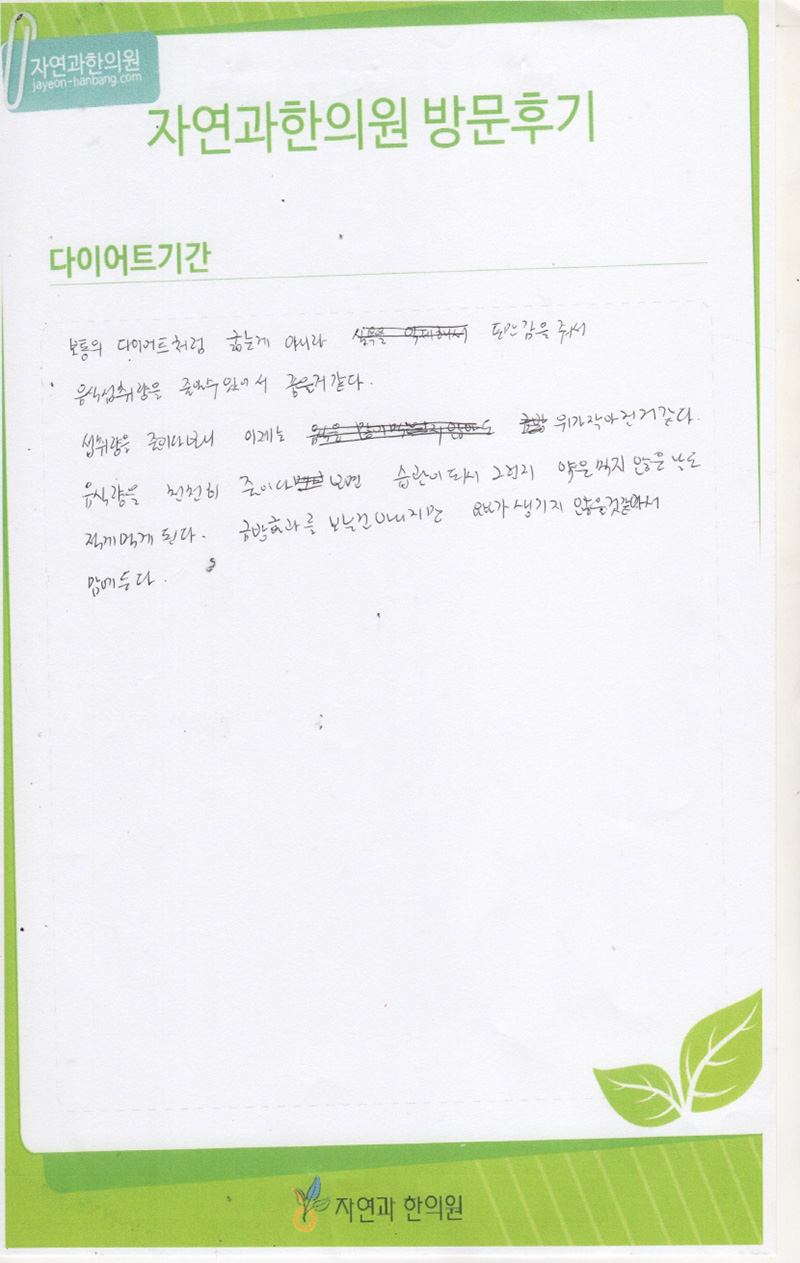 자연과한의원
jayeon-hanbang.com
자연과한의원 방문후기
다이어트기간
보통의 다이어트처럼 굶는게 아니라 식욕을 억제해서 포만감을 줘서
음식섭취량을 줄일수 있어서 좋은거 같다.
섭취량을 줄이다보니 이제는 음식을 많이 먹 않아도 금방 위가 작아진거 같다.
음식량을 천천히 줄이다 보면 습관이 되서 그런지 약을 먹지 않은 날도
적게먹게 된다. 금방효과를 보는건 아니지만 요요가 생기지 않을것같아서
맘에 든다.
자연과 한의원